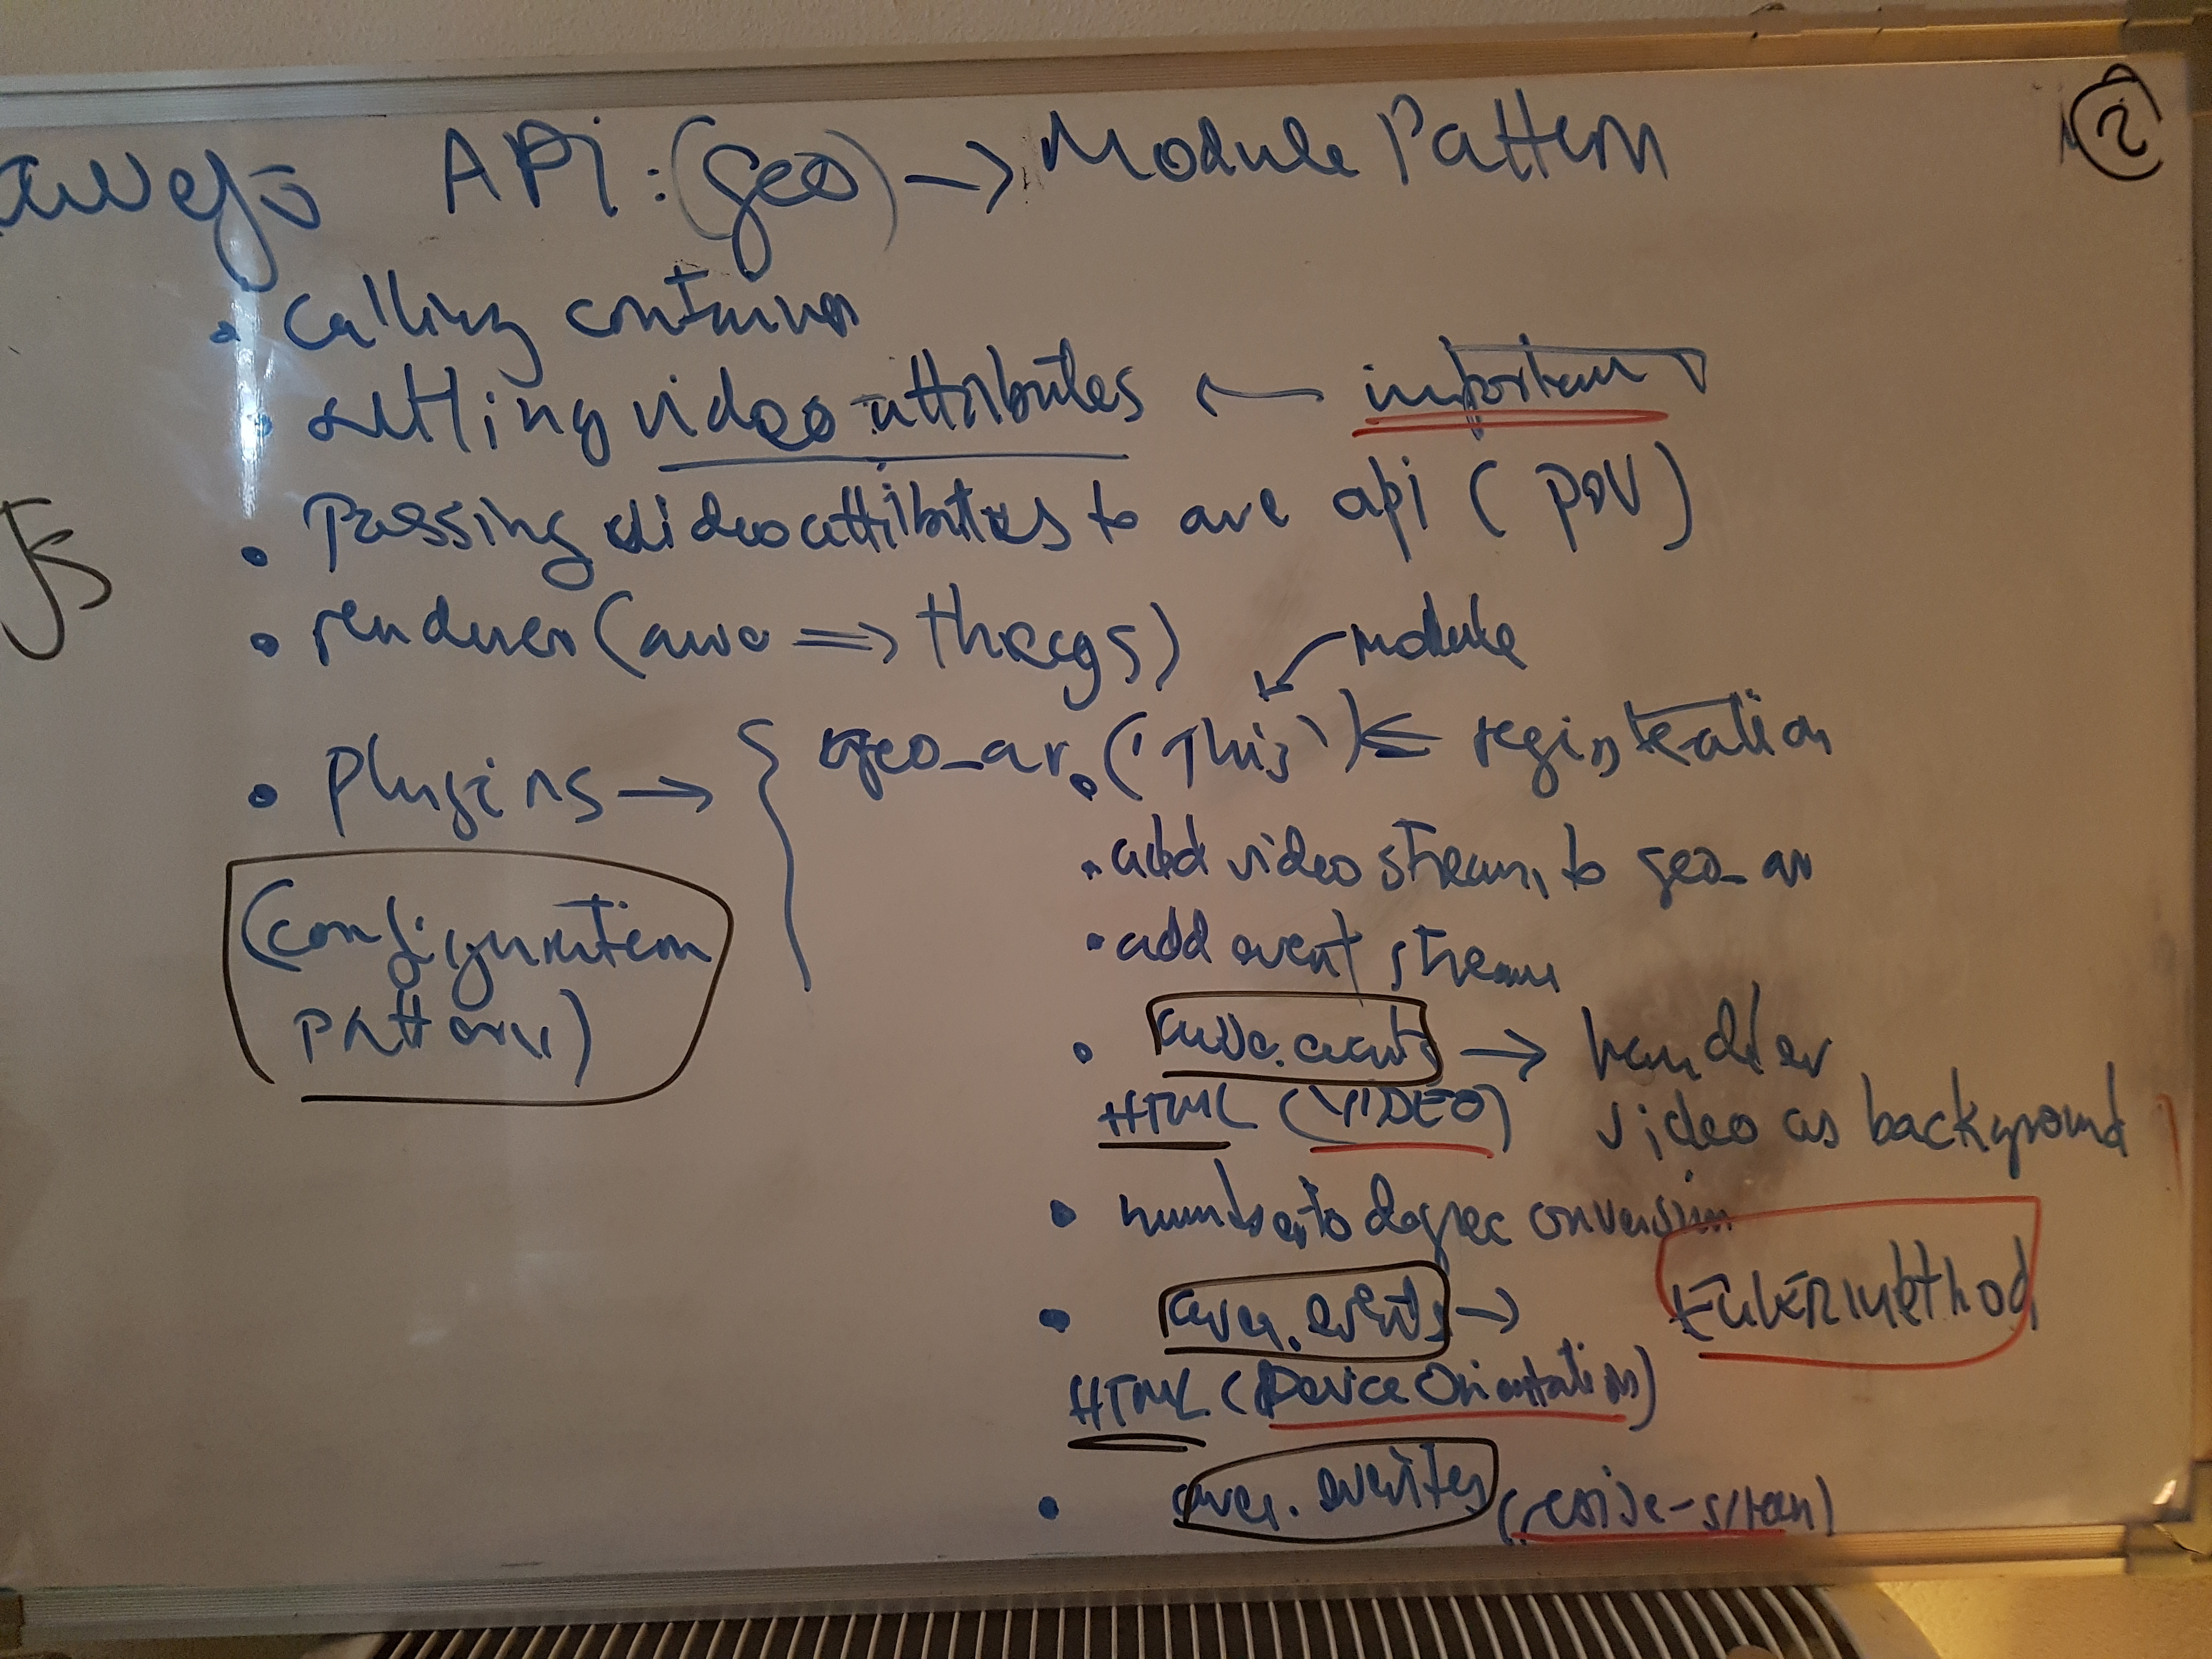 awejs API: (geo) → Module Pattern
②
• calling container
• setting video attributes ← important
• Passing video attributes to awe api (POV)
JS
• renderer (awe => threejs)
module
• Plugins → { geo_ar.('This') <= registration
• add video stream to geo_ar
• add event stream
(configuration
pattern)
• awe.events → handler
HTML (VIDEO) video as background
• number to degree conversion
• awe.events → EULER method
HTML (Device Orientation)
• awe.events (resize-screen)